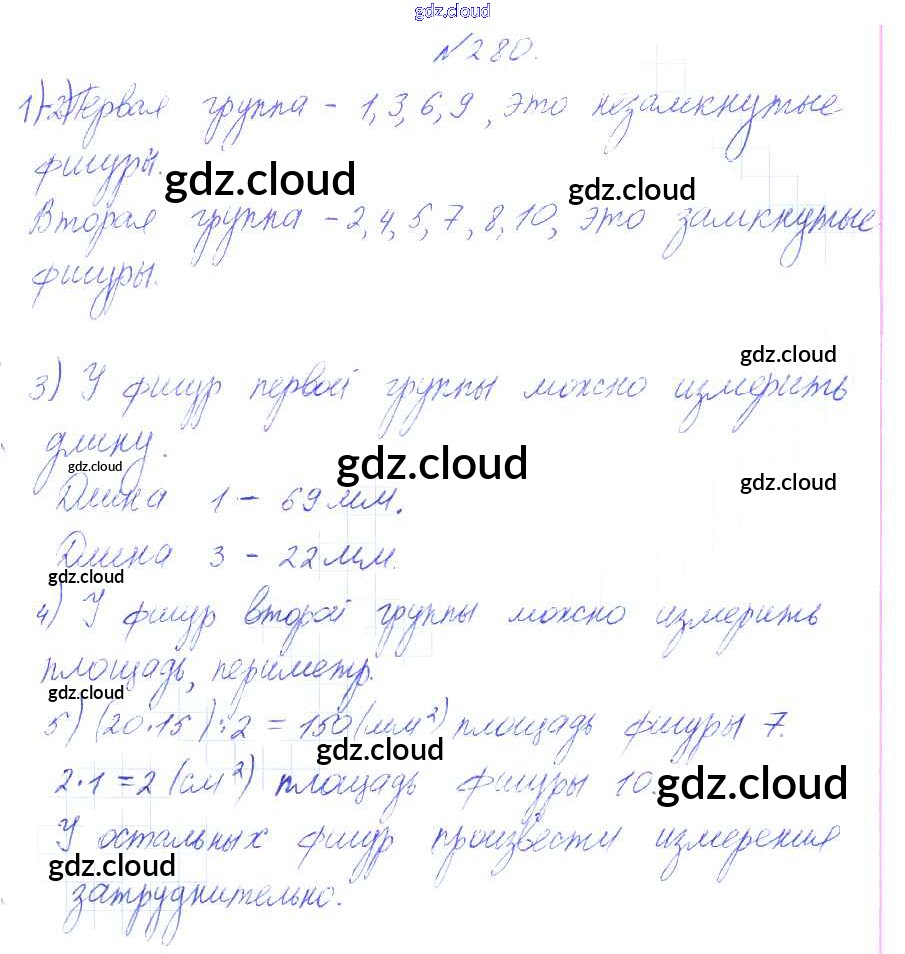 gdz.cloud
№280.
1)-2) Первая группа - 1, 3, 6, 9, это незамкнутые
фигуры.
gdz.cloud
gdz.cloud
Вторая группа - 2, 4, 5, 7, 8, 10, это замкнутые
фигуры.
gdz.cloud
3) У фигур первой группы можно измерить
длину.
gdz.cloud
gdz.cloud
gdz.cloud
Длина 1 - 69 мм.
Длина 3 - 22 мм.
gdz.cloud
4) У фигур второй группы можно измерить
площадь, периметр.
gdz.cloud
5) (20·15):2=150(мм²) площадь фигуры 7.
gdz.cloud
2·1=2 (см²) площадь фигуры 10.
gdz.cloud
У остальных фигур произвести измерения
gdz.cloud
затруднительно.
gdz.cloud
gdz.cloud